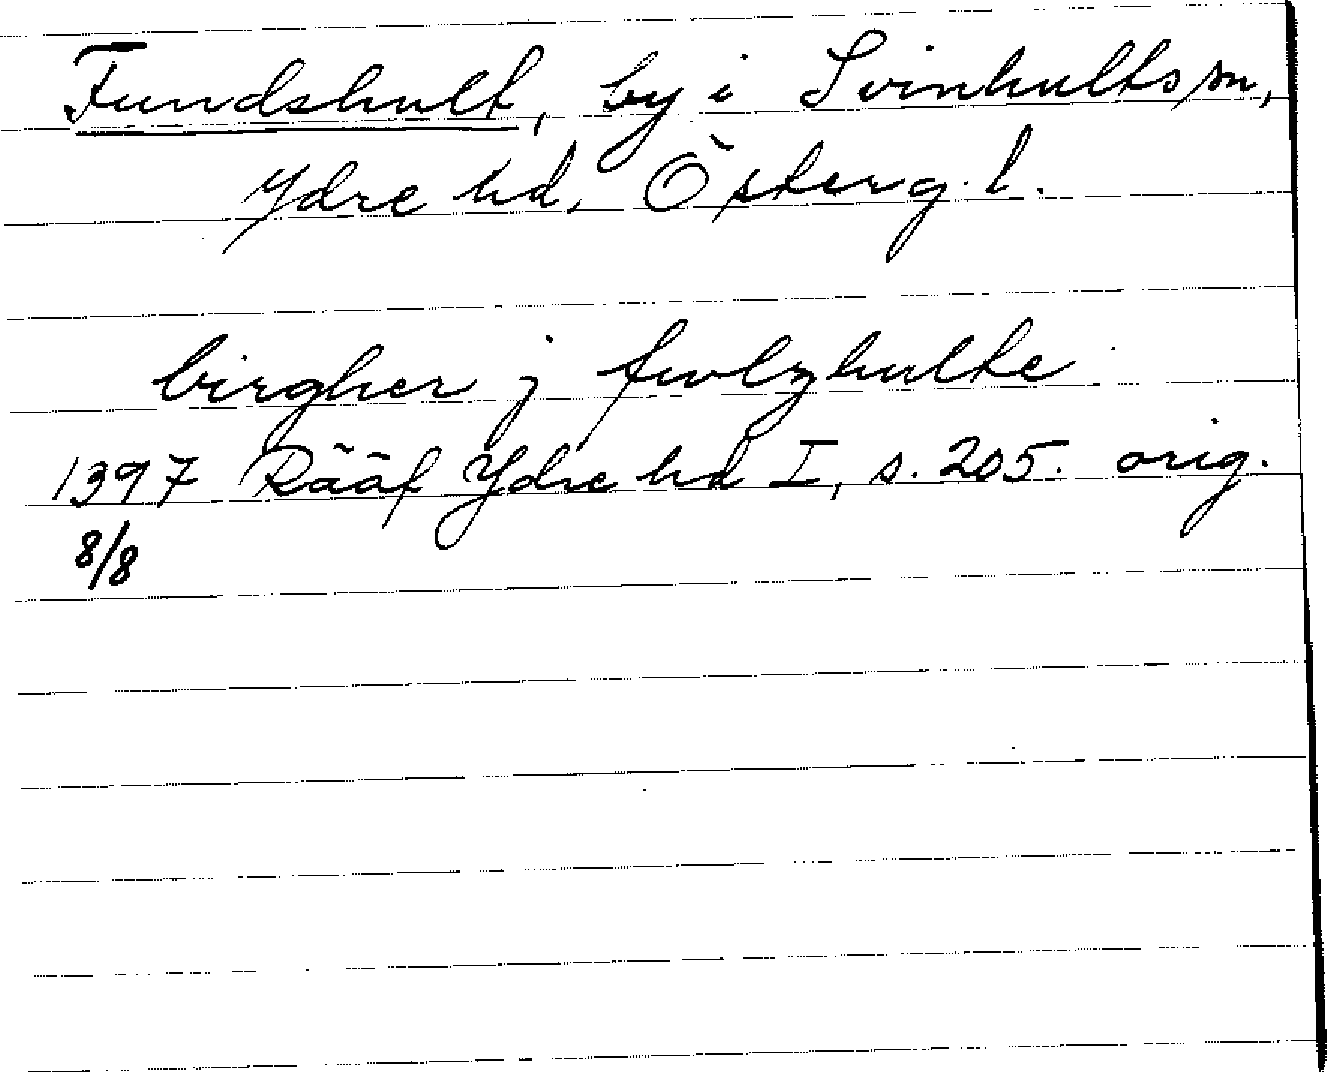 Fundshult, by i Svinhults sn,
Ydre hd, Österg. l.
birgher j fwlzhulte
1397 Rääf Ydre hd I, s. 205. orig.
8/8